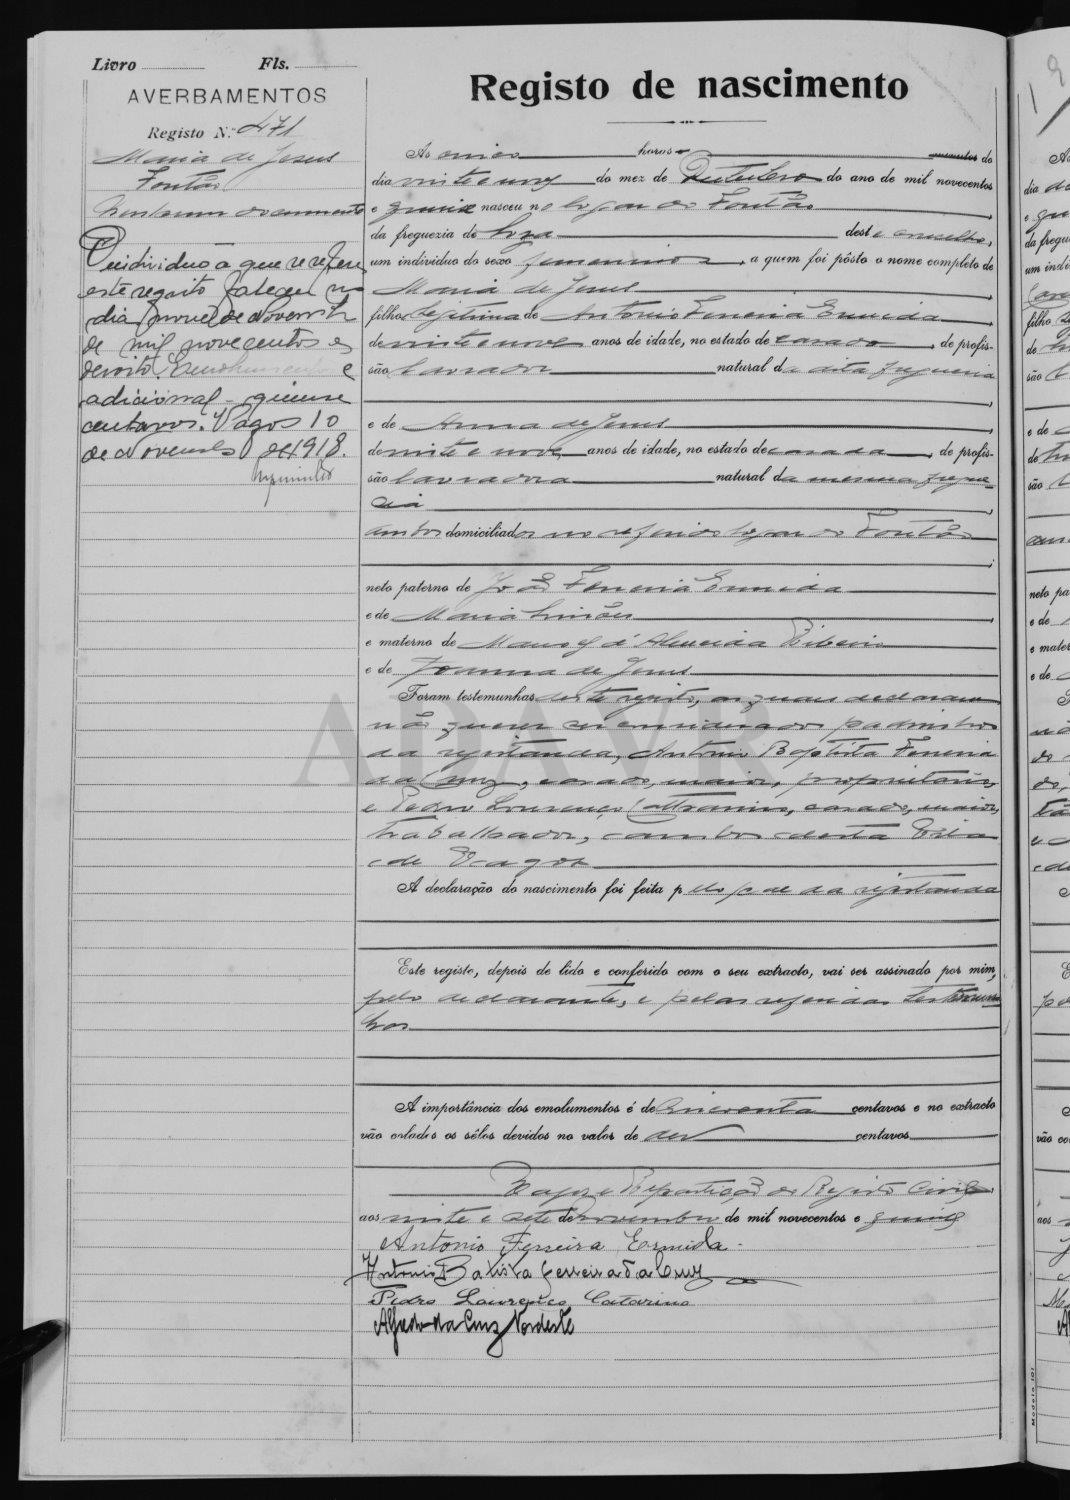 Livro Fls.
AVERBAMENTOS
Registo N.º 471
Maria de Jesus
Fontão
Nenhum documento
O individuo a que se refere
este registo faleceu no
dia nove de Novembro
de mil novecentos e
dezoito. Emolumento e
adicional - quinze
centavos. Pagos 10
de Novembro de 1918.
Registo de nascimento
Ás cinco horas do
dia vinte e nove do mez de Outubro do ano de mil novecentos
e quinze nasceu no logar de Fontão
da freguezia de Soza deste concelho,
um individuo do sexo femenino, a quem foi pôsto o nome completo de
Maria de Jesus
filha legitima de Antonio Ferreira Ermida
de vinte e nove anos de idade, no estado de casado, de profis-
são lavrador natural da dita freguesia
e de Anna de Jesus
de vinte e nove anos de idade, no estado de casada, de profis-
são lavradora natural da mesma fregue-
sia
ambos domiciliados no referido logar de Fontão
neto paterno de João Ferreira Ermida
e de Maria Simões
e materno de Manoel d'Almeida Ribeiro
e de Joanna de Jesus
Foram testemunhas deste registo, as quaes declararam
não querer ser considerados padrinhos
da registanda, Antonio Baptista Ferreira
da Cruz, casado, maior, proprietario,
e Pedro Lourenço Cattarino, casado, maior,
trabalhador, ambos desta Vila
de Vagos
A declaração do nascimento foi feita pelo pae da registanda
Este registo, depois de lido e conferido com o seu extracto, vai ser assinado por mim,
pelo declarante, e pelas referidas testemu-
nhas
A importância dos emolumentos é de cincoenta centavos e no extracto
vão colados os sêlos devidos no valor de dez centavos
Vagos e Repartição do Registo Civil
aos vinte e sete de novembro de mil novecentos e quinze
Antonio Ferreira Ermida
Antonio Batista Ferreira da Cruz
Pedro Lourenço Catarino
Alfredo da Cruz Nordeste
ADAVR
Modelo 101